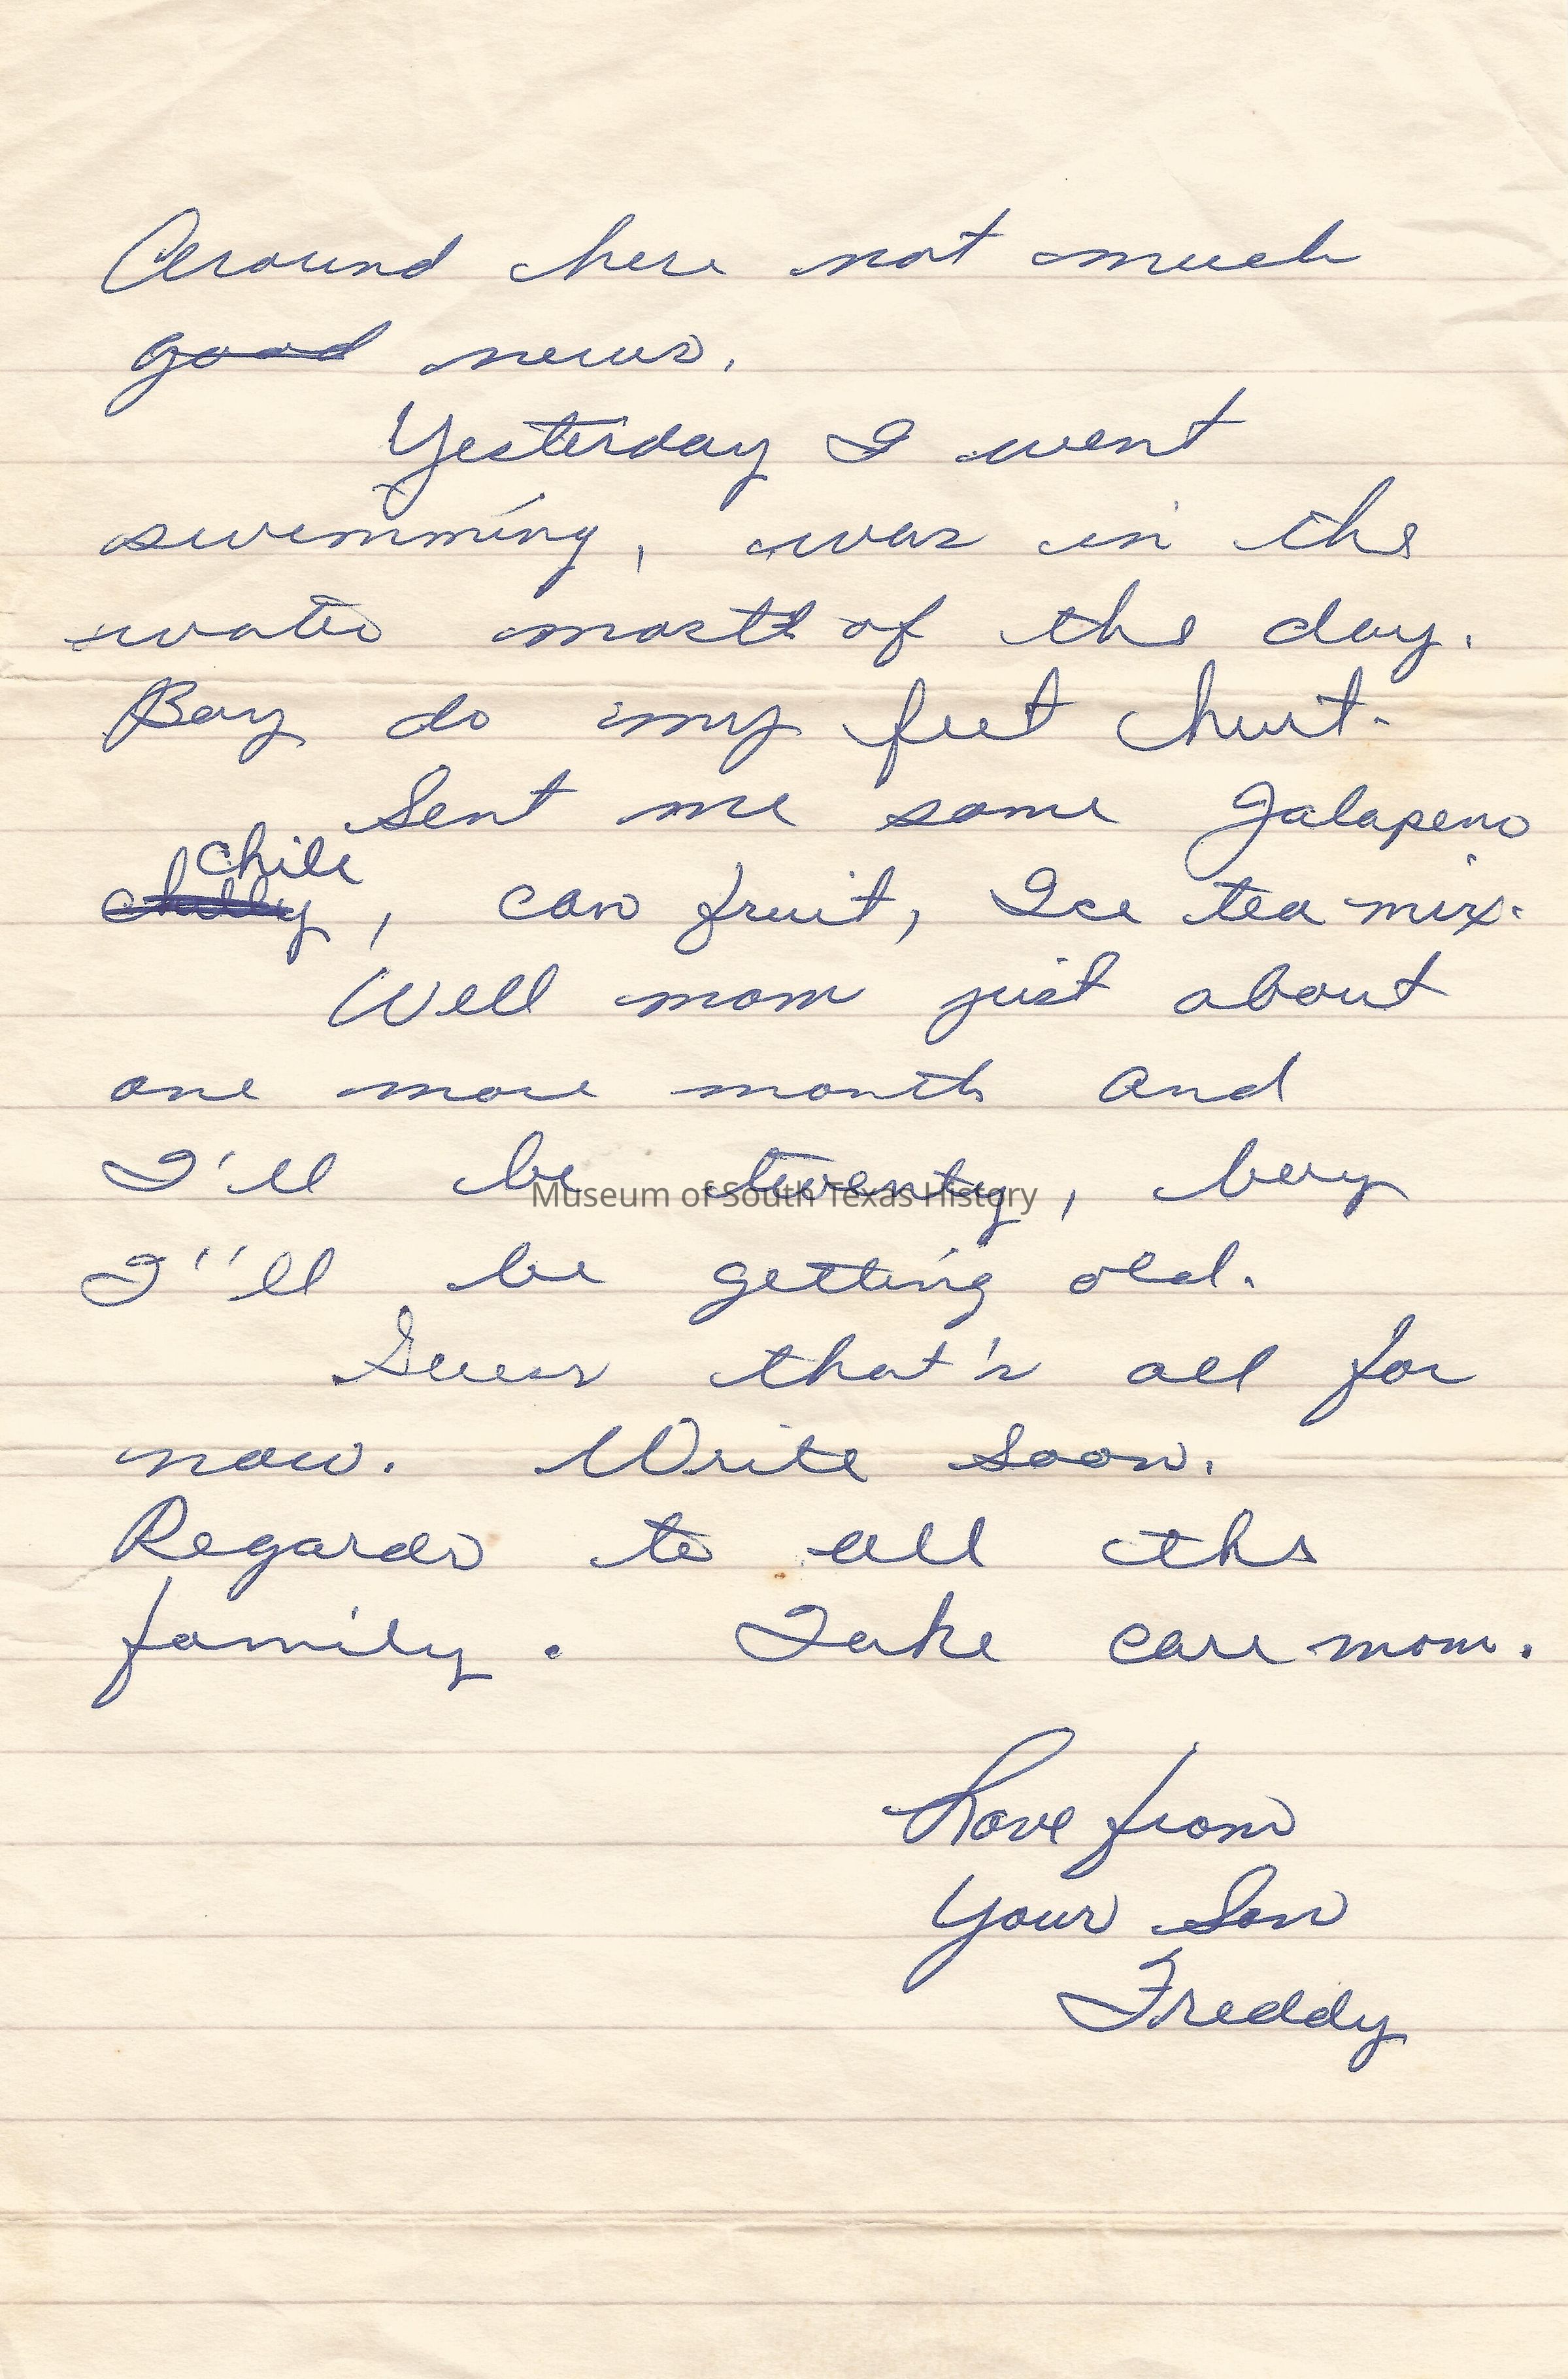 Around here not much
good news.
Yesterday I went
swimming, was in the
water most of the day.
Boy do my feet hurt.
Sent me some Jalapeno
chile
chilly, can fruit, Ice tea mix.
Well mom just about
one more month and
I'll be twenty, boy
Museum of South Texas History
I''ll be getting old.
Guess that's all for
now. Write soon.
Regards to all the
family. Take care mom.
Love from
Your Son
Freddy